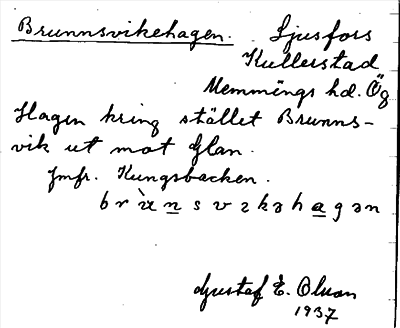 Brunnsvikehagen. Ljusfors
Kullerstad
Memmings hd. Ög
Hagen kring stället Brunns-
vik ut mot Glan.
Jmfr. Kungsbacken.
brùnsvikəhagən
Gustaf E. Olson
1937